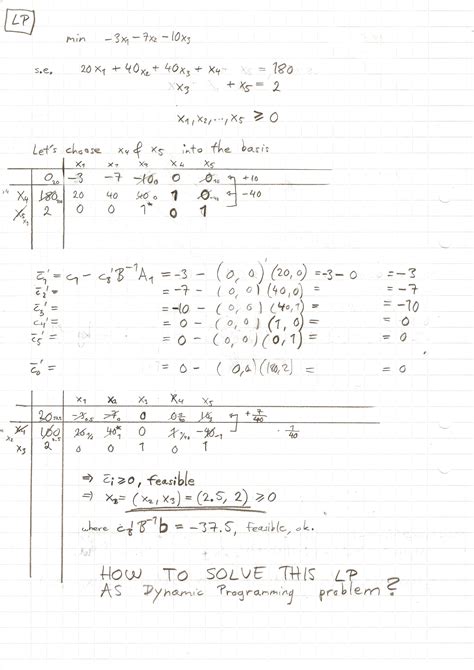 LP
min -3x1 - 7x2 - 10x3
s.e. 20x1 + 40x2 + 40x3 + x4 = 180
x3 + x5 = 2
x1, x2, ..., x5 ≥ 0
Let's choose x4 & x5 into the basis
x1 x2 x3 x4 x5
0 20 -3 -7 -10 0 0 0 +10
x4 180 20 40 40 1 0 -40
x5 2 0 0 1* 0 1
x3
c̄1' = c1 - cB'B⁻¹A1 = -3 - (0, 0)'(20, 0) = -3 - 0 = -3
c̄2' = = -7 - (0, 0)(40, 0) = = -7
c̄3' = = -10 - (0, 0)(40, 1) = = -10
c̄4' = = 0 - (0, 0)(1, 0) = = 0
c̄5' = = 0 - (0, 0)(0, 1) = = 0
c̄0' = = 0 - (0, 0)(180, 2) = = 0
x1 x2 x3 x4 x5
20 -3 -7 0 0 10 + 7/40
x4 100 20 40* 0 1 -40 1/40
x2 2.5
x3 2 0 0 1 0 1
⇒ c̄i ≥ 0, feasible
⇒ xB = (x2, x3) = (2.5, 2) ≥ 0
where cB'B⁻¹b = -37.5, feasible, ok.
HOW TO SOLVE THIS LP
AS Dynamic Programming problem?